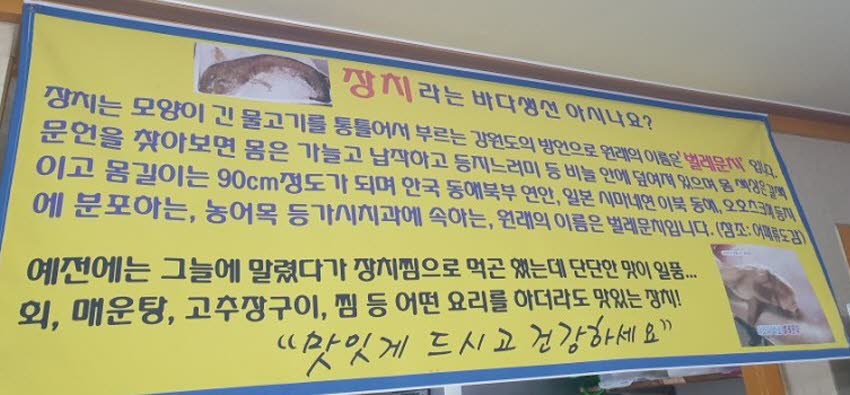 장치라는 바다생선 아시나요?
장치는 모양이 긴 물고기를 통틀어서 부르는 강원도의 방언으로 원래의 이름은 '벌레문치' 입니다.
문헌을 찾아보면 몸은 가늘고 납작하고 등지느러미 등 비늘 안에 덮여져 있으며, 몸 색상은 갈색
이고 몸길이는 90cm정도가 되며 한국 동해북부 연안, 일본 시마네현 이북 동해, 오오츠크해 등지
에 분포하는, 농어목 등가시치과에 속하는, 원래의 이름은 벌레문치입니다. (참조: 어패류도감)
예전에는 그늘에 말렸다가 장치찜으로 먹곤 했는데 단단한 맛이 일품...
회, 매운탕, 고추장구이, 찜 등 어떤 요리를 하더라도 맛있는 장치!
"맛있게 드시고 건강하세요"